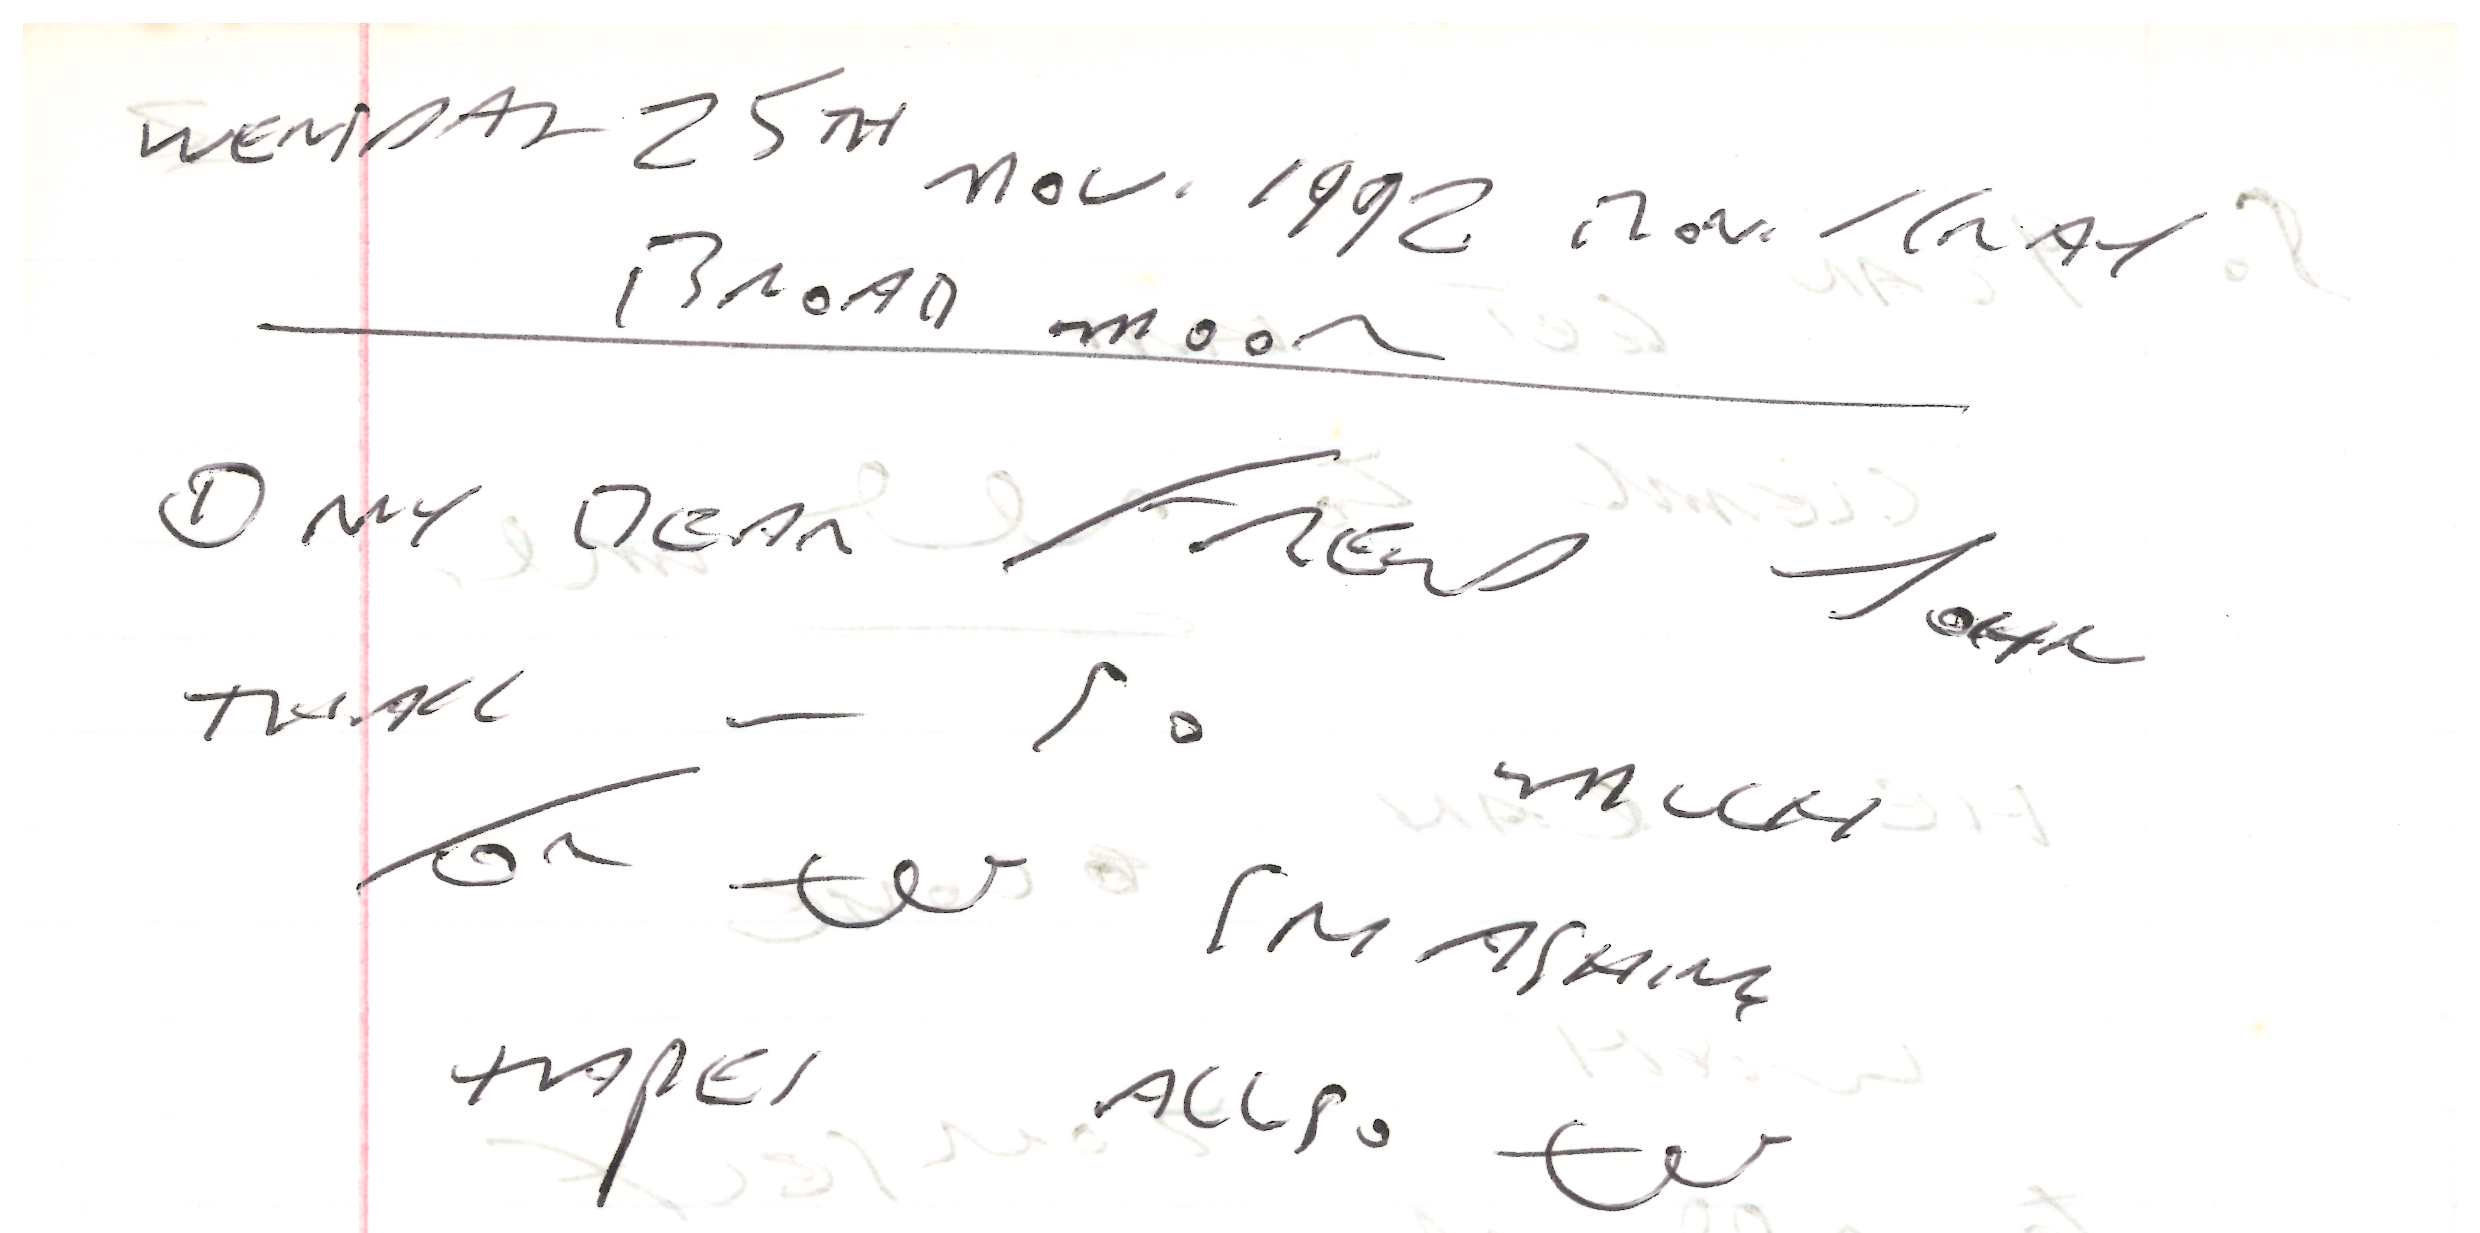 WENSDAY 25TH NOV. 1992 RON. KRAY
BROAD MOOR
① MY DEAR FREND JOHN
THANK — SO MUCH
FOR the SMASHING
TAPES ALLSO the